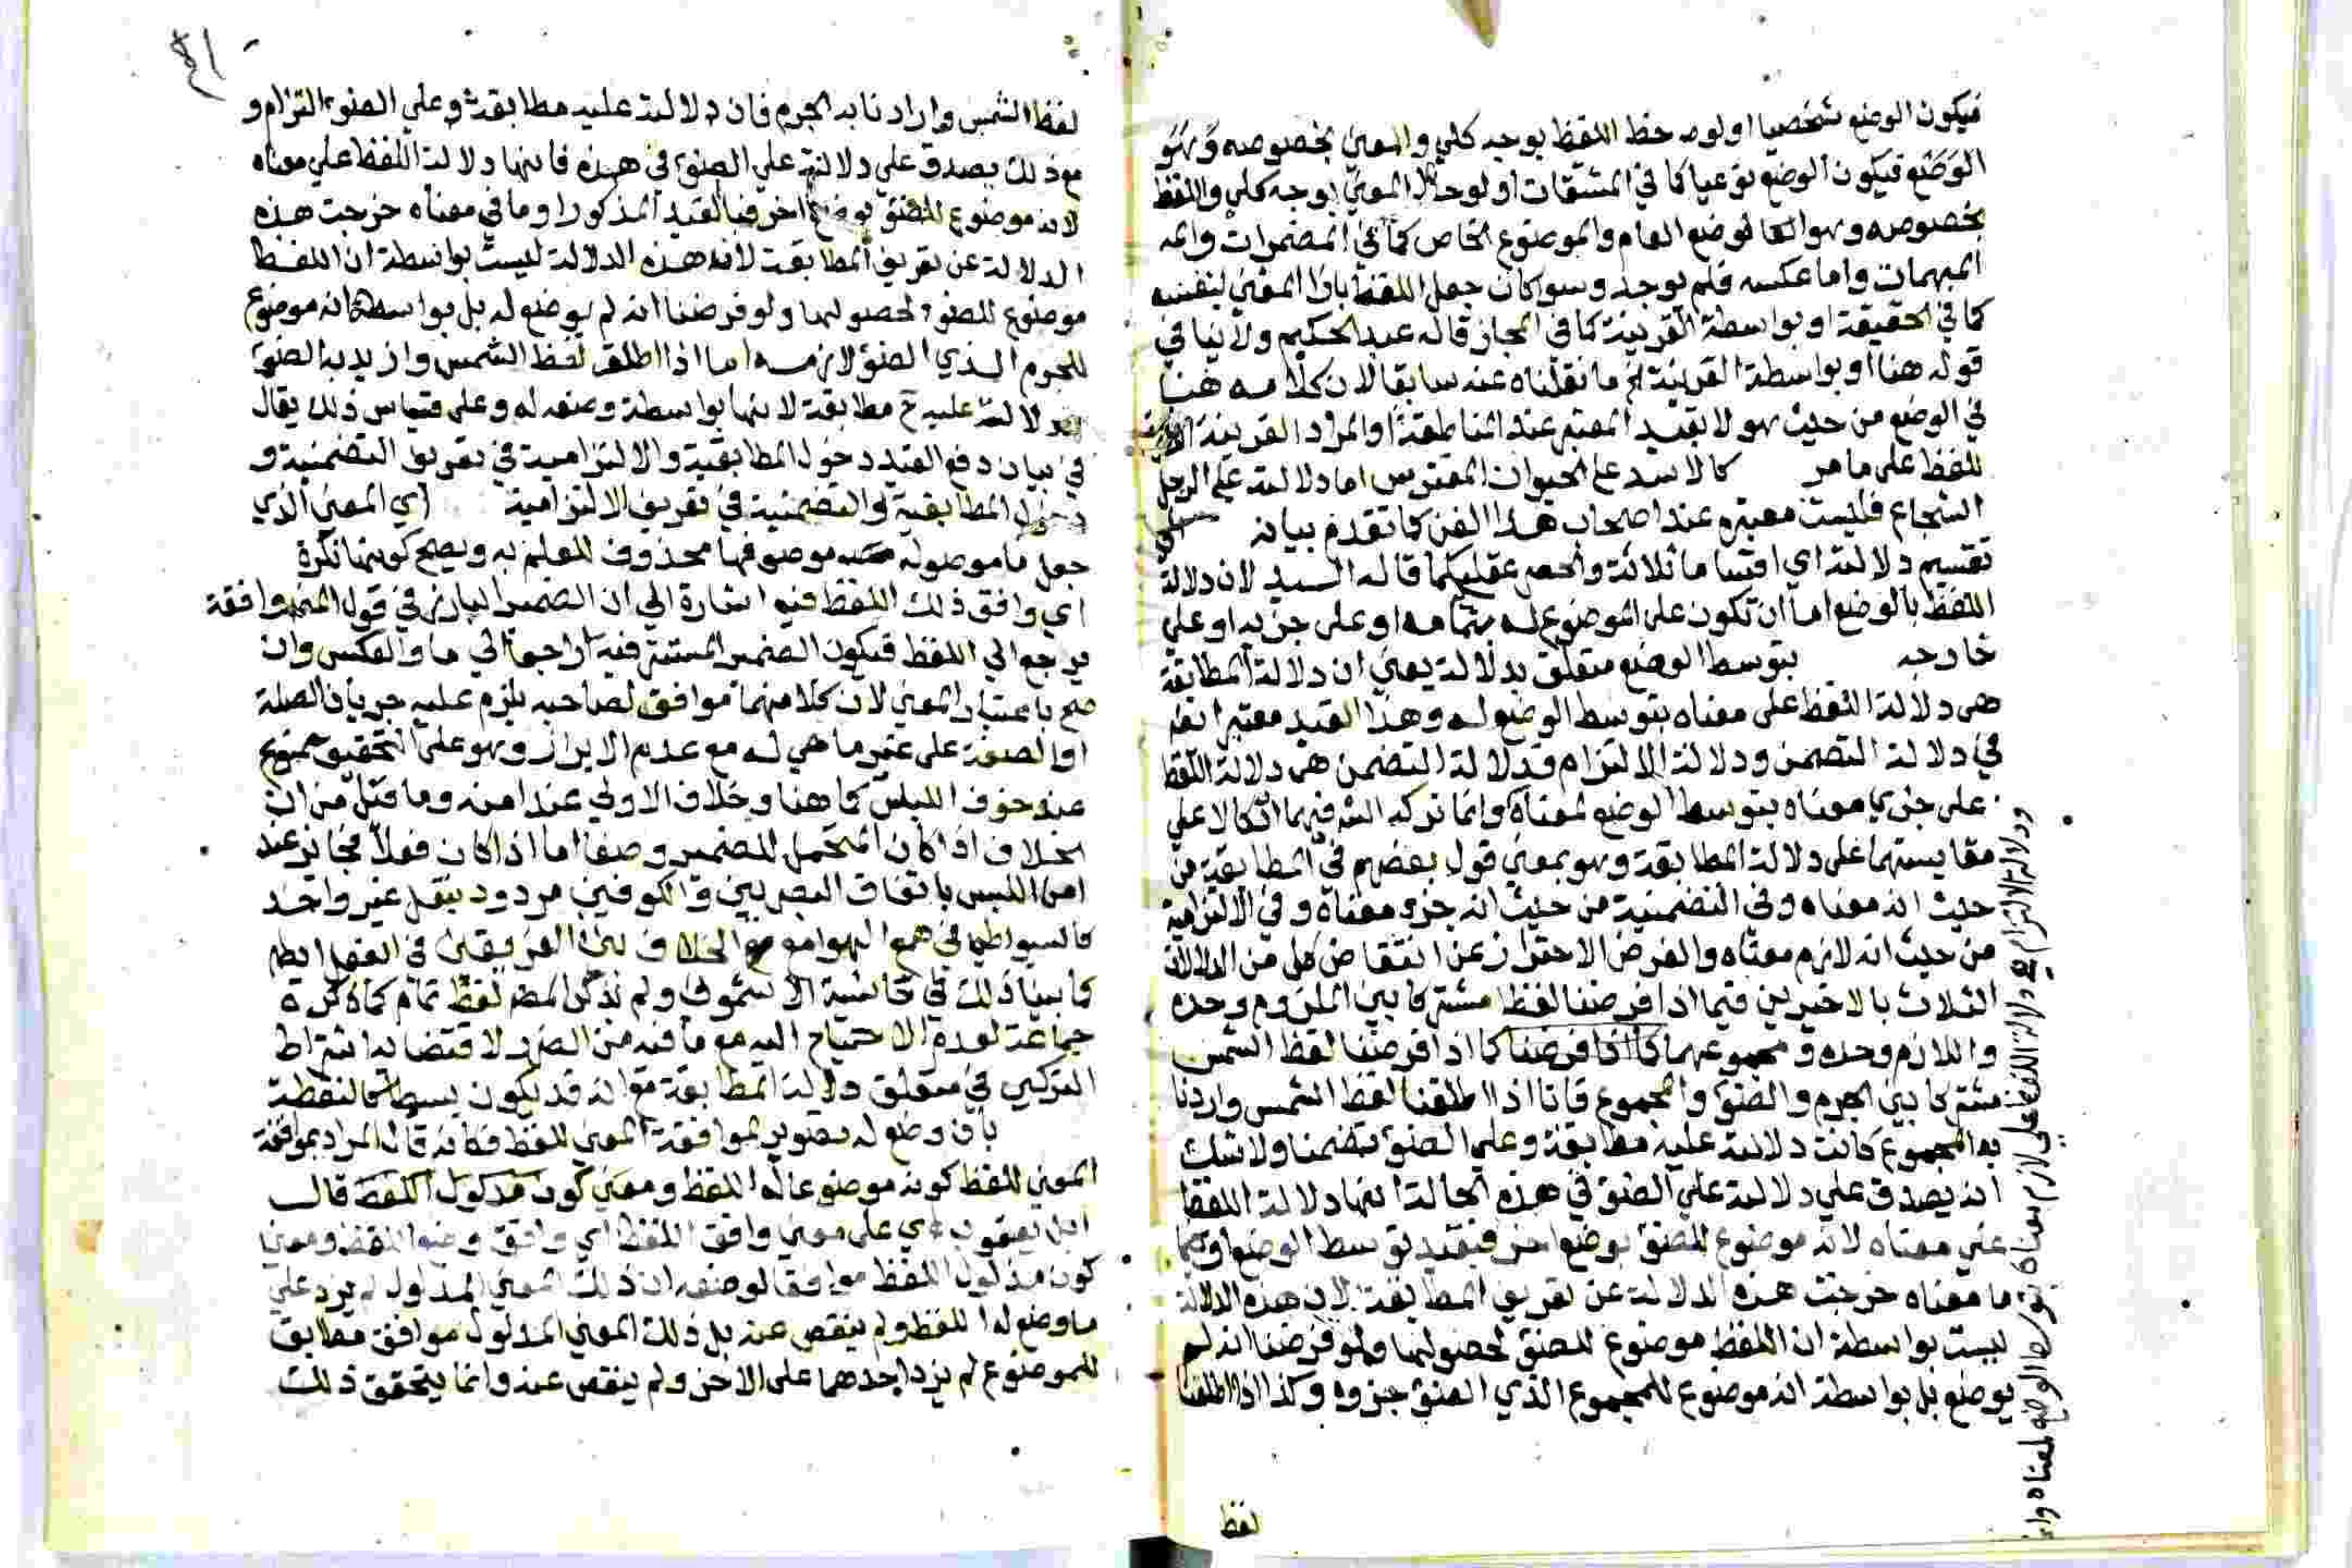 فيكون الوضع شخصيا او لوحظ اللفظ بوجه كلي والمعنى بخصوصه وهو
الوضع فيكون الوضع نوعيا كما في المشتقات او لوحظ المعنى بوجه كلي واللفظ
بخصوصه وهو الوضع العام والموضوع الخاص كما في المضمرات و
المبهمات واما عكسه فلم يوجد وسوا كان جعل اللفظ بازا المعنى لنفسه
كما في الحقيقة او بواسطة القرينة كما في المجاز قاله عبد الحكيم ولا ينافي
قوله هنا او بواسطة القرينة ما نقلناه عنه سابقا لان كلامه هنا
في الوضع من حيث هو لا بقيد المعتبر عند المناطقة او المراد القرينة
للفظ على ما مر كالاسد على الحيوان المفترس اما دلالته على الرجل
الشجاع فليست معتبره عند اصحاب هذا الفن كما تقدم بيانه
تقسيم دلالته اي اقسامها ثلاثة والحصر عقلي كما قاله السيد لان دلالة
اللفظ بالوضع اما ان تكون على الموضوع له بتمامه او على جزيه او على
خارجه بتوسط الوضع متعلق بدلالة يعني ان دلالة المطابقة
هي دلالة اللفظ على معناه بتوسط الوضع له وهذا القيد معتبر ايضا
في دلالة التضمن ودلالة الالتزام فدلالة التضمن هي دلالة اللفظ
على جزي معناه بتوسط الوضع لمعناه وانما تركه الش فيهما اتكالا على
مقايستهما على دلالة المطابقة وهو بمعنى قول بعضهم في المطابقية من
حيث انه معناه وفي التضمنية من حيث انه جزو معناه وفي الالتزامية
من حيث انه لازم معناه والغرض الاحتراز عن انتقاض كل من الدلالات
الثلاث بالاخيرين فيما اذا فرضنا لفظا مشتركا بين الملزوم وحده
واللازم وحده ومجموعهما كما اذا فرضنا كما اذا فرضنا لفظ الشمس
مشتركا بين الجرم والضوء والمجموع فانا اذا اطلقنا لفظ الشمس واردنا
به المجموع كانت دلالته عليه مطابقة وعلى الضوء تضمنا ولا شك
انه يصدق على دلالته على الضوء في هذه الحالة انها دلالة اللفظ
على معناه لانه موضوع للضوء بوضع اخر فبقيد توسط الوضع او
ما معناه خرجت هذه الدلالة عن تعريف المطابقة لان هذه الدلالة
ليست بواسطة ان اللفظ موضوع للضوء لحصولها ولو فرضنا انه لم
يوضع بل بواسطة انه موضوع للمجموع الذي الضوء جزوه وكذا اذا اطلقنا
لفظ
ودلالة الالتزام هي دلالة اللفظ على لازم معناه بتوسط الوضع لمعناه
لفظ الشمس وارادنا به الجرم فان دلالته عليه مطابقة وعلى الضوء التزام و
مع ذلك يصدق على دلالته على الضوء في هذه فانها دلالة اللفظ على معناه
لانه موضوع للضوء بوضع اخر فبالقيد المذكور او ما في معناه خرجت هذه
الدلالة عن تعريف المطابقة لانه هذه الدلالة ليست بواسطة ان اللفظ
موضوع للضوء لحصولها ولو فرضنا انه لم يوضع له بل بواسطة انه موضوع
للجرم الذي الضوء لازمه اما اذا اطلق لفظ الشمس واريد به الضوء
فدلالته عليه ح مطابقة لانها بواسطة وضعه له وعلى قياس ذلك يقال
في بيان دفع القيد دخول المطابقية والالتزامية في تعريف التضمنية و
دخول المطابقية والتضمنية في تعريف الالتزامية اي المعنى الذي
جعل ما موصوله موصوفها محذوف للعلم به ويصح كونها نكرة
اي وافق ذلك اللفظ فيه اشارة الى ان الضمير البارز في قول المص وافقه
يرجع الى اللفظ فيكون الضمير المستتر فيه راجعا الى ما والعكس وان
صح باعتبار المعنى لان كلا منهما موافق لصاحبه يلزم عليه جريان الصلة
او الصفة على غير ما هي له مع عدم الابراز وهو على التحقيق ممنوع
عند خوف اللبس كما هنا وخلاف الاولى عند امنه وما قيل من ان
الخلاف اذا كان المتحمل للضمير وصفا اما اذا كان فعلا فجايز عند
امن اللبس باتفاق البصريين والكوفيين مردود بنقل غير واحد
كالسيوطي في همع الهوامع الخلاف بين الفريقين في الفعل ايضا
كما بينا ذلك في حاشية الاشموني ولم يذكر المص لفظ تمام كما ذكره
جماعة لعدم الاحتياج اليه مع ما فيه من الضرر لاقتضايه اشتراط
التركيب في متعلق دلالة المطابقة مع انه قد يكون بسيطا كالنقطة
بان وضع له تصوير لموافقة المعنى للفظ فكانه قال المراد بموافقة
المعنى للفظ كونه موضوعا له اللفظ ومعنى كون مدلول اللفظ قال
ابن يعقوب اي على معنى وافق اللفظ اي وافق وضع اللفظ ومعنى
كون مدلول اللفظ موافقا لوضعه ان ذلك المعنى المدلول لم يزد على
ما وضع له اللفظ ولم ينقص عنه بل ذلك المعنى المدلول موافق مطابق
للموضوع لم يزد احدهما على الاخر ولم ينقص عنه وانما يتحقق ذلك